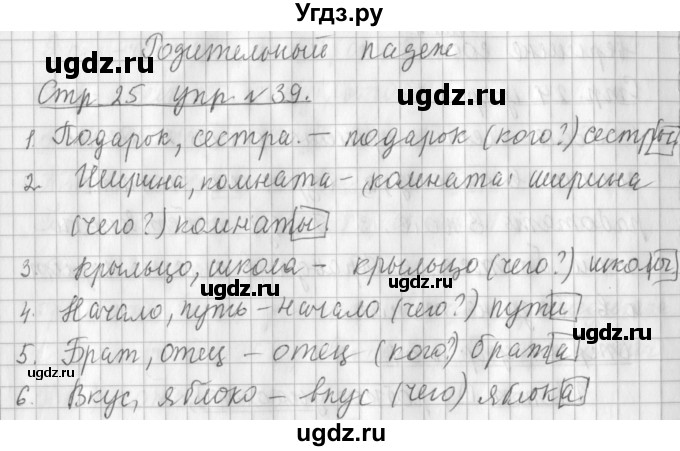 Угдз.ру
Родительный падеж
Стр 25 упр № 39.
1. Подарок, сестра. – подарок (кого?) сестры
2. Ширина, комната – комната ширина
(чего?) комнаты
3. крыльцо, школа – крыльцо (чего?) школы
4. Начало, путь – начало (чего?) пути
5. Брат, отец – отец (кого?) брата
6. Вкус, яблоко – вкус (чего) яблока.
ugdz.ru
ugdz.ru
ugdz.ru
ugdz.ru
ugdz.ru
ugdz.ru
ugdz.ru
ugdz.ru
ugdz.ru
ugdz.ru
ugdz.ru